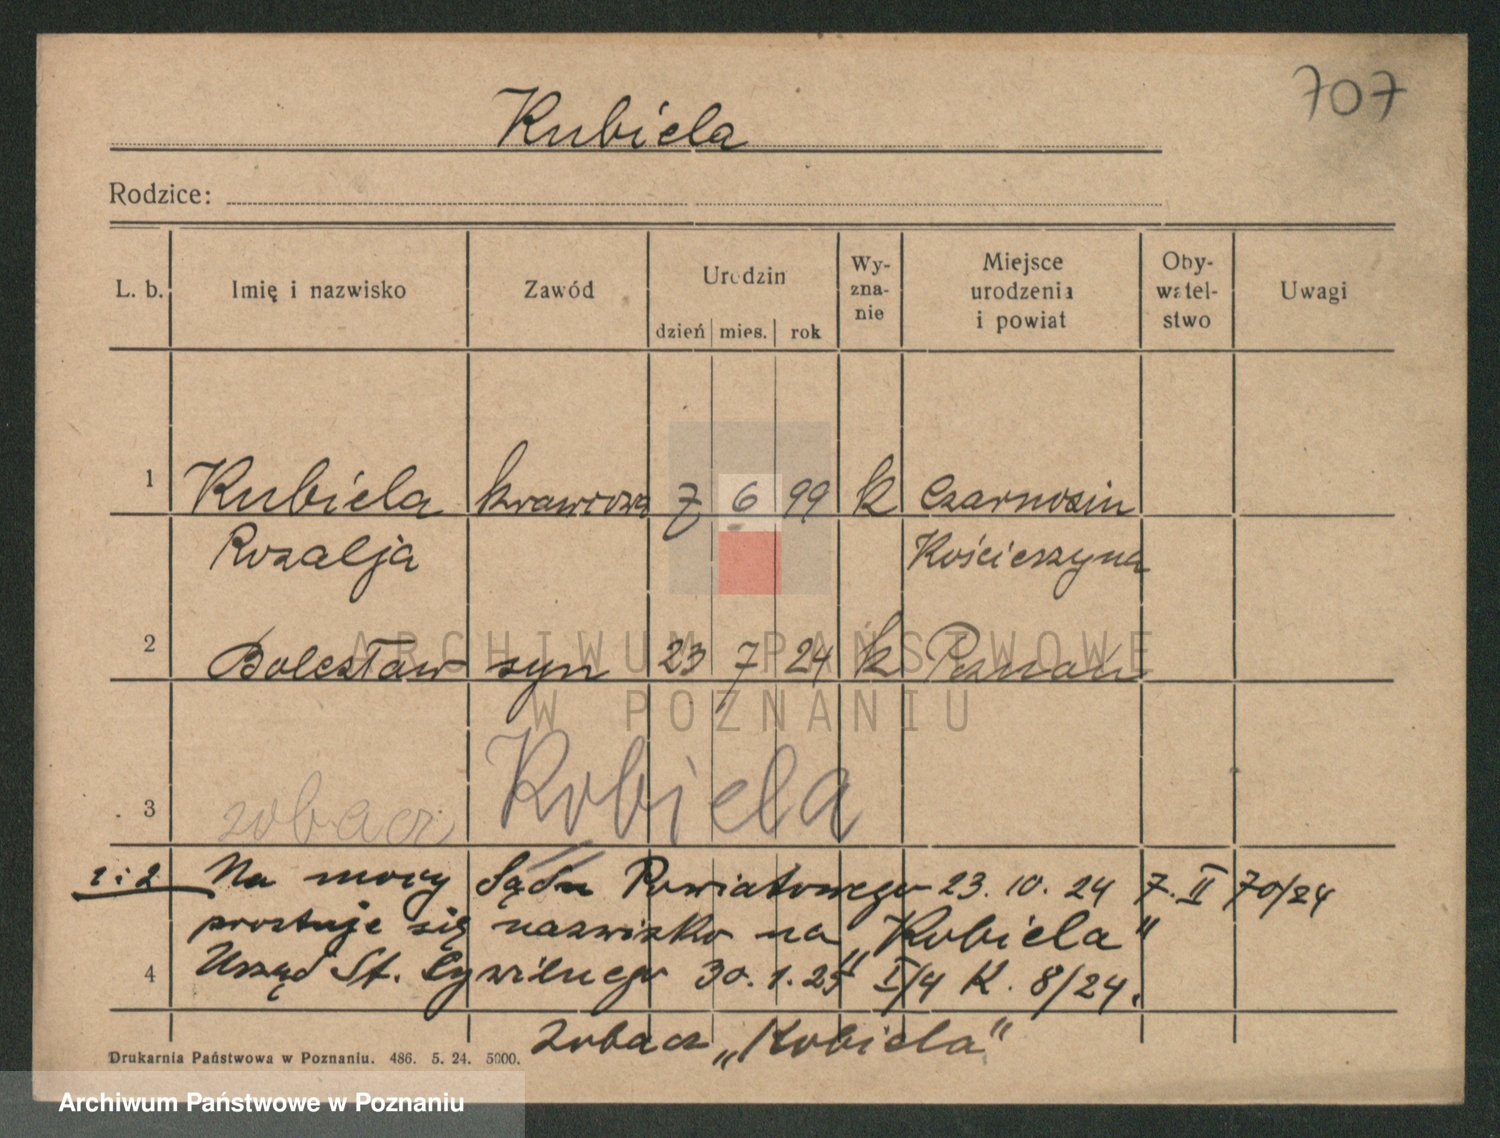 707
Kubiela
Rodzice:
L. b. Imię i nazwisko Zawód Urodzin dzień mies. rok Wy-zna-nie Miejsce urodzenia i powiat Oby-watel-stwo Uwagi
1 Kubiela krawcowa 7 6 99 k Czarnosin
Rozalja Kościerzyna
2 Bolesław syn 23 7 24 k Poznań
ARCHIWUM PAŃSTWOWE
W POZNANIU
3 zobacz Kobiela
1 i 2 Na mocy Sądu Powiatowego 23. 10. 24 7. II 70/24
prostuje się nazwisko na „Kobiela"
4 Urząd St. Cywilnego 30. 1. 25 I/4 K. 8/24.
Zobacz „Kobiela"
Drukarnia Państwowa w Poznaniu. 486. 5. 24. 5000.
Archiwum Państwowe w Poznaniu